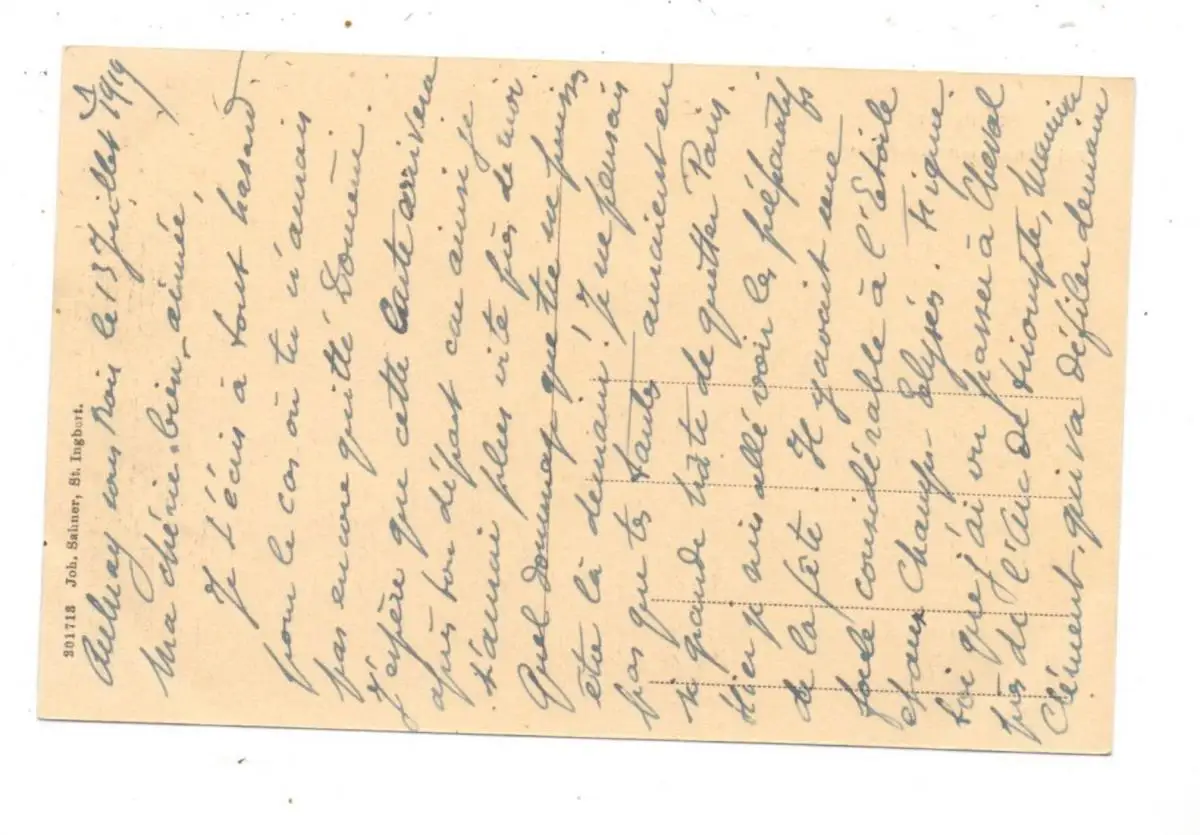 201713 Joh. Sahner, St. Ingbert.
Aulnay sous Bois le 13 Juillet 1919
Ma chérie bien-aimée,
Je t'écris à tout hasard
pour le cas où tu n'aurais
pas encore quitté Douéra.
J'espère que cette carte arrivera
après ton départ car ainsi je
t'aurai plus vite près de moi
Quel dommage que tu ne puisses
être là demain! Je ne pensais
pas que tes tantes auraient eu
si grande hâte de quitter Paris.
Hier je suis allé voir les préparatifs
de la fête. Il y avait une
foule considérable à l'Etoile
et aux Champs-Elysées. Figure
toi que j'ai vu passer à cheval
près de l'Arc de triomphe, Maurice
Clément, qui va défiler demain